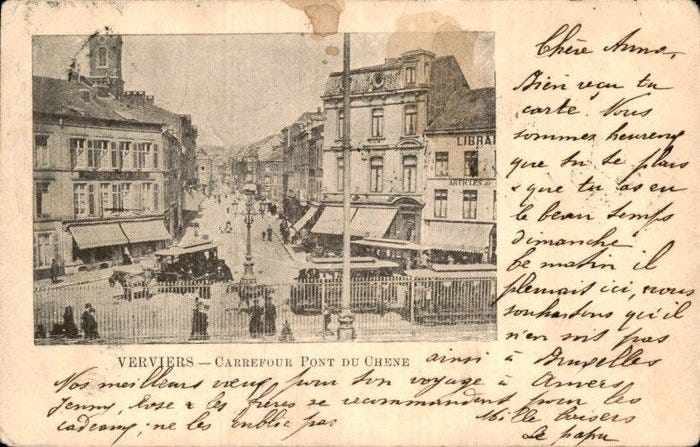 Chère Anna,
Bien reçu ta
carte. Nous
sommes heureux
que tu te plais
& que tu as eu
le beau temps
dimanche
Ce matin il
pleuvait ici, nous
souhaitons qu'il
n'en soit pas
ainsi à Bruxelles
LIBRAI
ARTICLES
VERVIERS — CARREFOUR PONT DU CHENE
Nos meilleurs vœux pour ton voyage à Anvers
Jenny, Rose & les frères se recommandent pour les
cadeaux; ne les oublie pas Mille baisers
Le papa